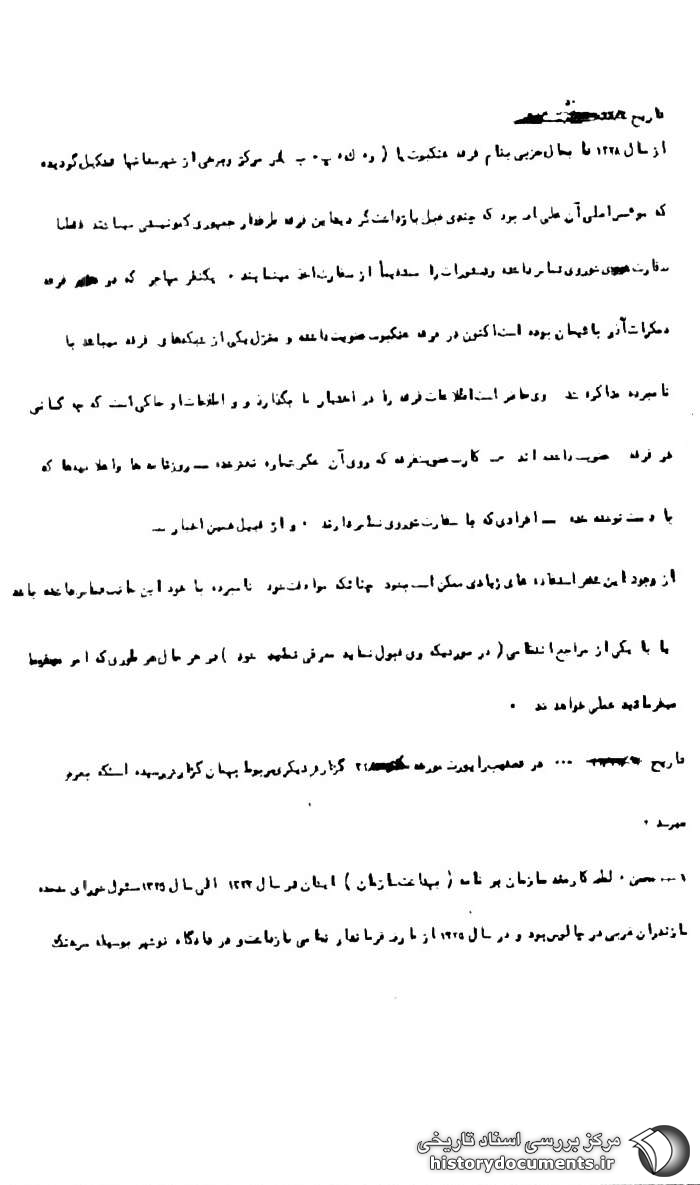 تاریخ
از سال ۱۳۲۸ تا بحال حزبی بنام فرقه عنکبوت یا ( ک پ ب در مرکز و برخی از شهرستانها تشکیل گردیده
که موسس اصلی آن علی اف بود که چندی قبل بازداشت گردید این فرقه طرفدار جمهوری کمونیستی میباشد فعلا
بسفارت شوروی تماس داشته و دستورات را مستقیماً از سفارت اخذ مینمایند ۰ یکنفر مهاجر که در فرقه
دمکرات آذربایجان بوده است اکنون در فرقه عنکبوت عضویت داشته و منزل یکی از شبکه‌های فرقه میباشد با
نامبرده مذاکره شد وی حاضر است اطلاعات فرقه را در اختیار ما بگذارد و اطلاعات او حاکی است که چه کسانی
در فرقه عضویت داشته اند ــ کارت عضویت فرقه که روی آن عکس شماره ــ روزنامه ها و اعلامیه‌ها که
با دست نوشته شده ــ افرادی که با سفارت شوروی تماس دارند ۰ و از قبیل همین اخبار ــ
از وجود این عنصر استفاده های زیادی ممکن است بشود چنانکه موافقت شود نامبرده با خود این جانب تماس داشته باشد
یا با یکی از مراجع انتظامی ( در صورتیکه وی قبول نماید معرفی شود ) در هر حال هر طوری که امر
میفرمائید عملی خواهد شد ۰
تاریخ ۰۰۰ در تعقیب راپورت مورخه گزارش دیگری مربوط بهمان گزارش رسیده است که بعرض
میرسد ۰
۱ ــ محسن ۰ کارمند سازمان برنامه ( بهداشت سازمان ) ایشان در سال ۱۳۲۴ الی سال ۱۳۲۵ مسئول شورای متحده
مازندران غربی در چالوس بود و در سال ۱۳۲۵ از طرف فرماندار نظامی بازداشت و در دادگاه نوشهر بوسیله سرهنگ
مرکز بررسی اسناد تاریخی
historydocuments.ir